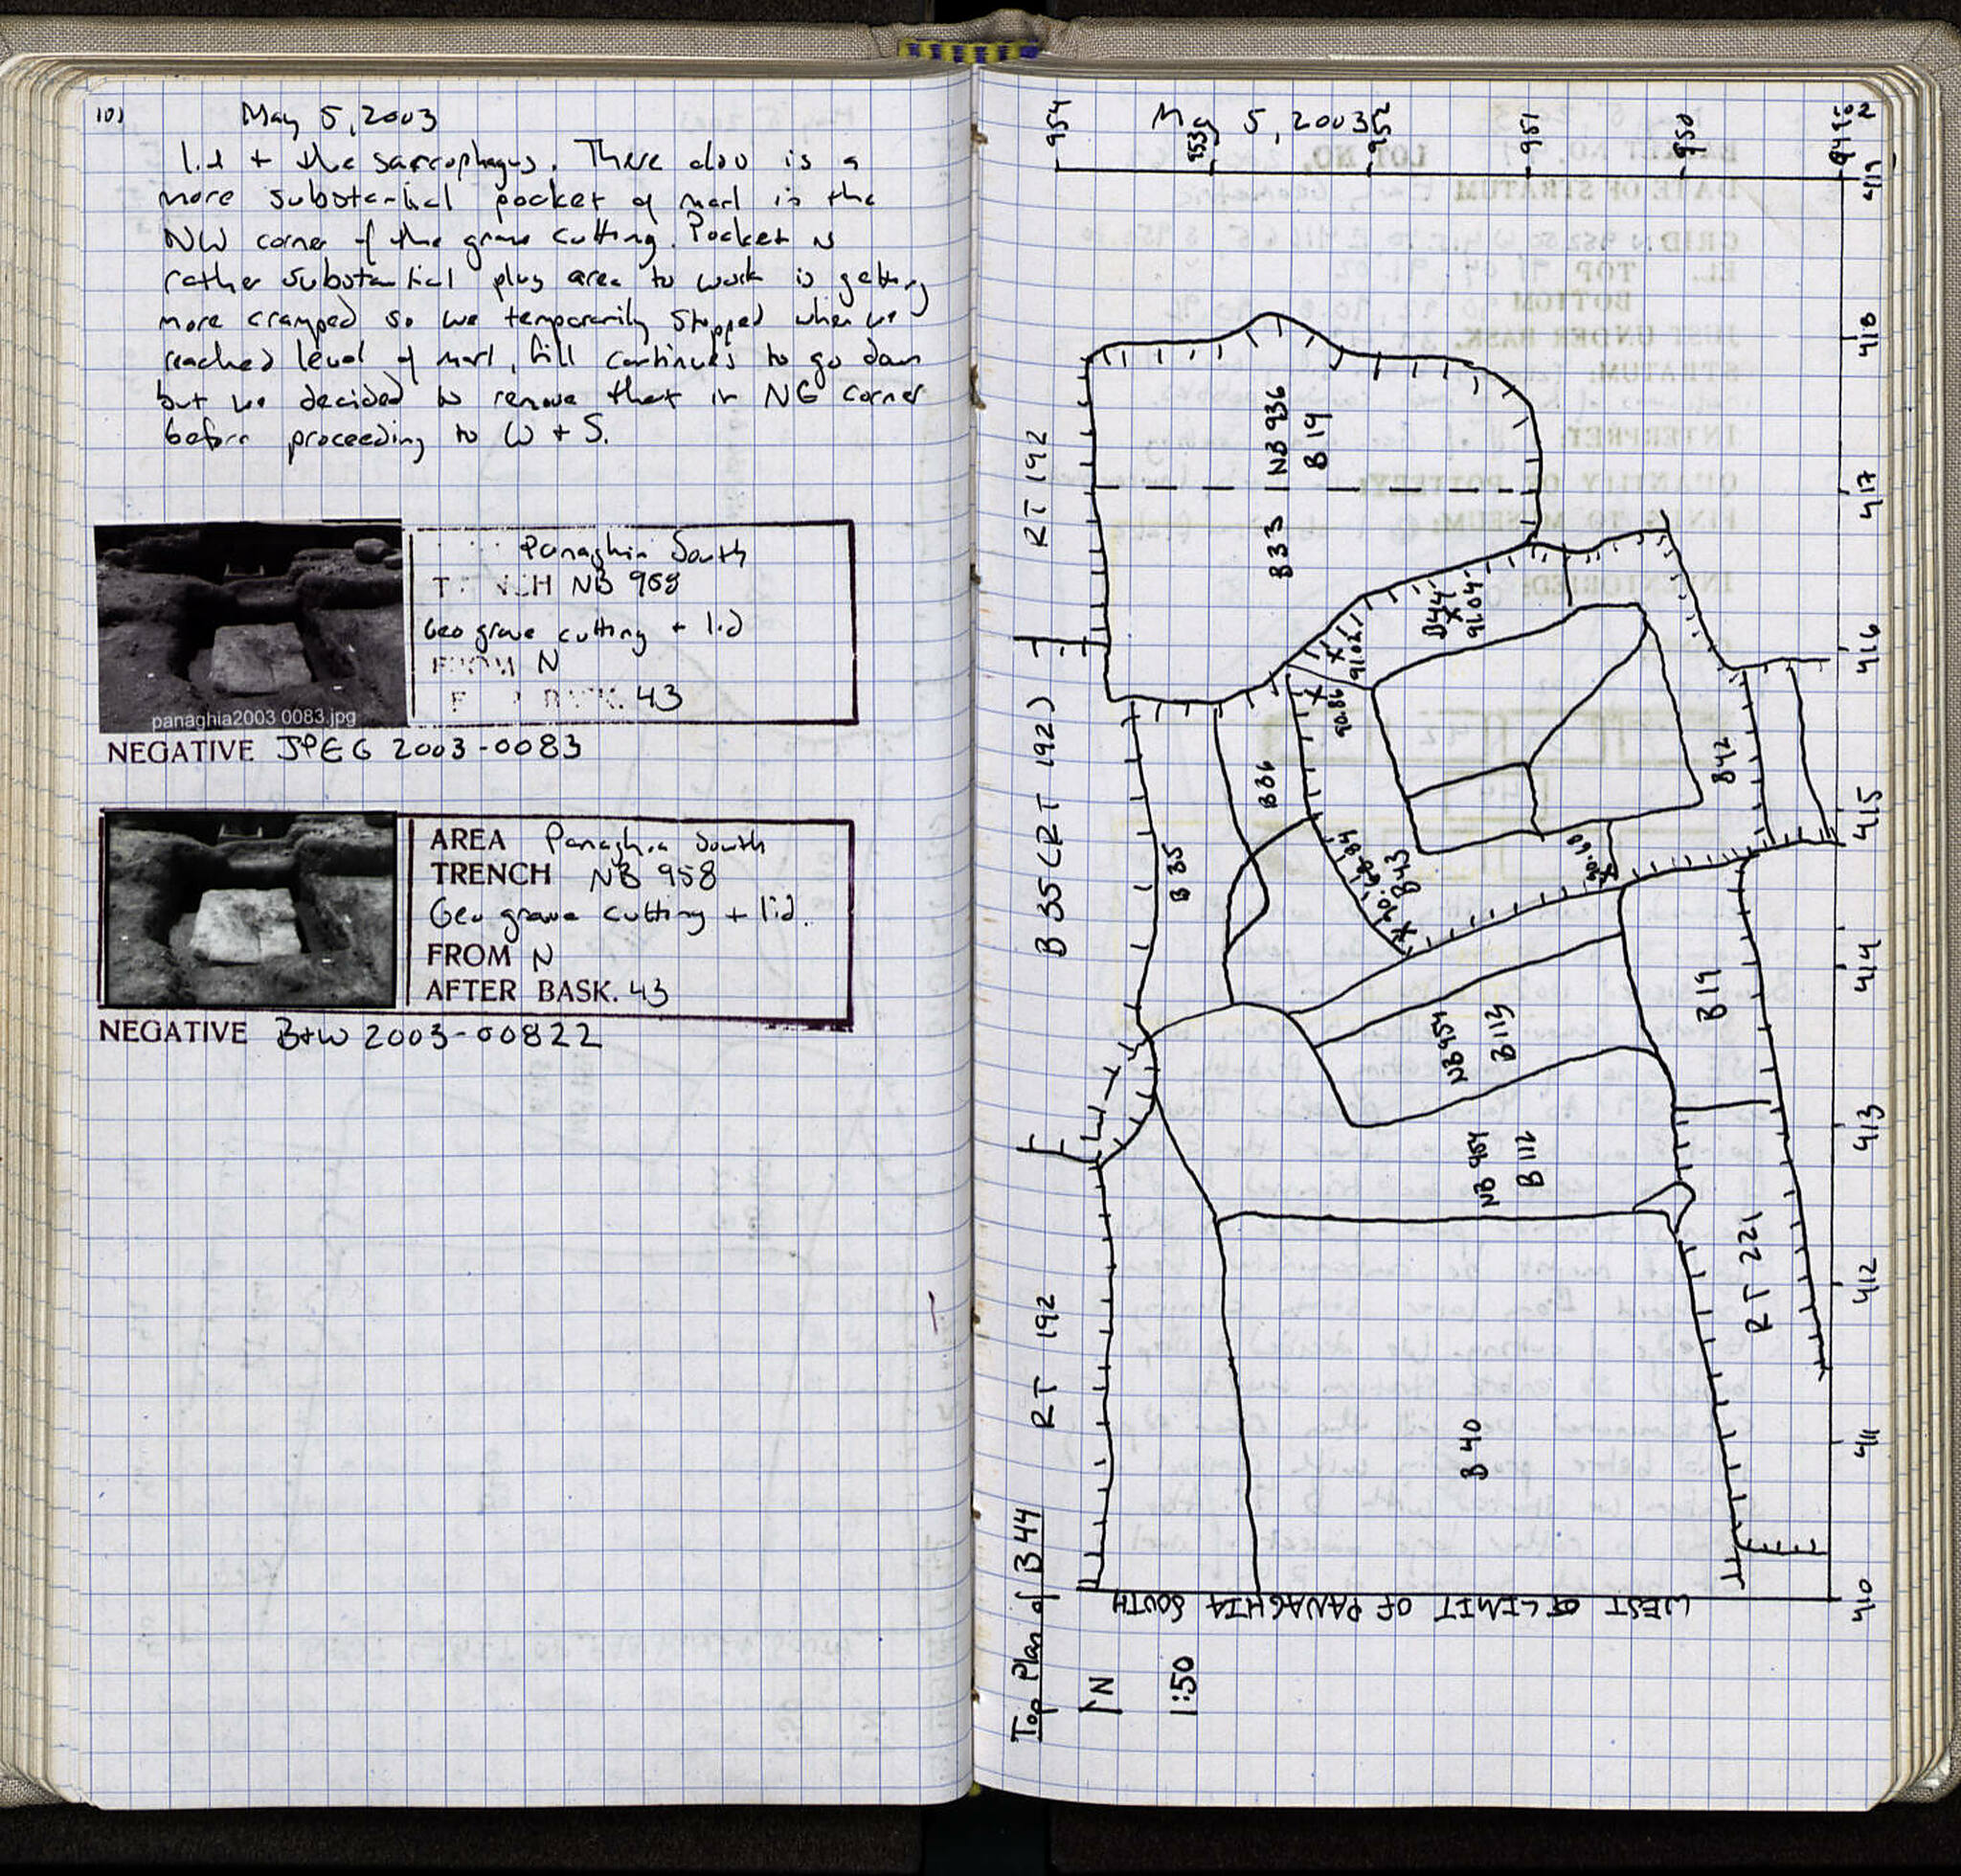 101
May 5, 2003
lid + the sarcophagus. There also is a
more substantial pocket of marl in the
NW corner of the grave cutting. Pocket is
rather substantial plus area to work is getting
more cramped so we temporarily stopped when we
reached level of marl, fill continues to go down
but we decided to remove that in NE corner
before proceeding to W + S.
Panaghia South
TRENCH NB 958
Geo grave cutting + lid
FROM N
BASK. 43
panaghia2003 0083.jpg
NEGATIVE JPEG 2003-0083
AREA Panaghia South
TRENCH NB 958
Geo grave cutting + lid.
FROM N
AFTER BASK. 43
NEGATIVE B+W 2003-00822
May 5, 2003
102
954
953
952
951
950
949
419
418
417
416
415
414
413
412
411
410
RT 192
B33
NB 936
B19
B44
91.04
91.02
90.86
B35 (RT 192)
B35
B36
B42
90.84
B43
90.68
B19
NB 954
B113
NB 954
B112
RT 192
RT 221
B 40
Top Plan of B 44
N
1:50
WEST LIMIT OF PANAGHIA SOUTH